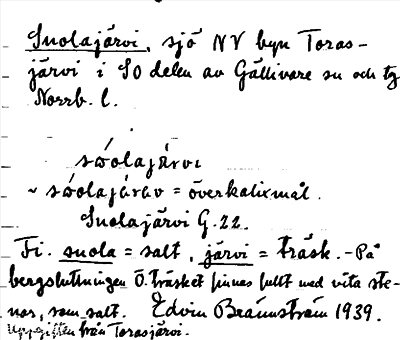 Suolajärvi, sjö NV byn Toras-
järvi i SO delen av Gällivare sn och tg
Norrb. l.
sωolajárvı
~ sωolajáràv = överkalixmål.
Suolajärvi G.22.
Fi. suola = salt, järvi = träsk. - På
bergsluttningen Ö. träsket finnes fullt med vita ste-
nar, som salt. Edvin Brännström 1939.
Uppgiften från Torasjärvi.